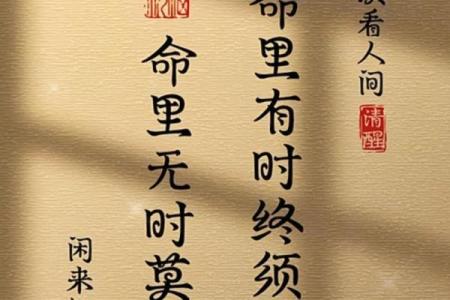 看人间
清醒
命里有时终须
命里无时莫
闲来